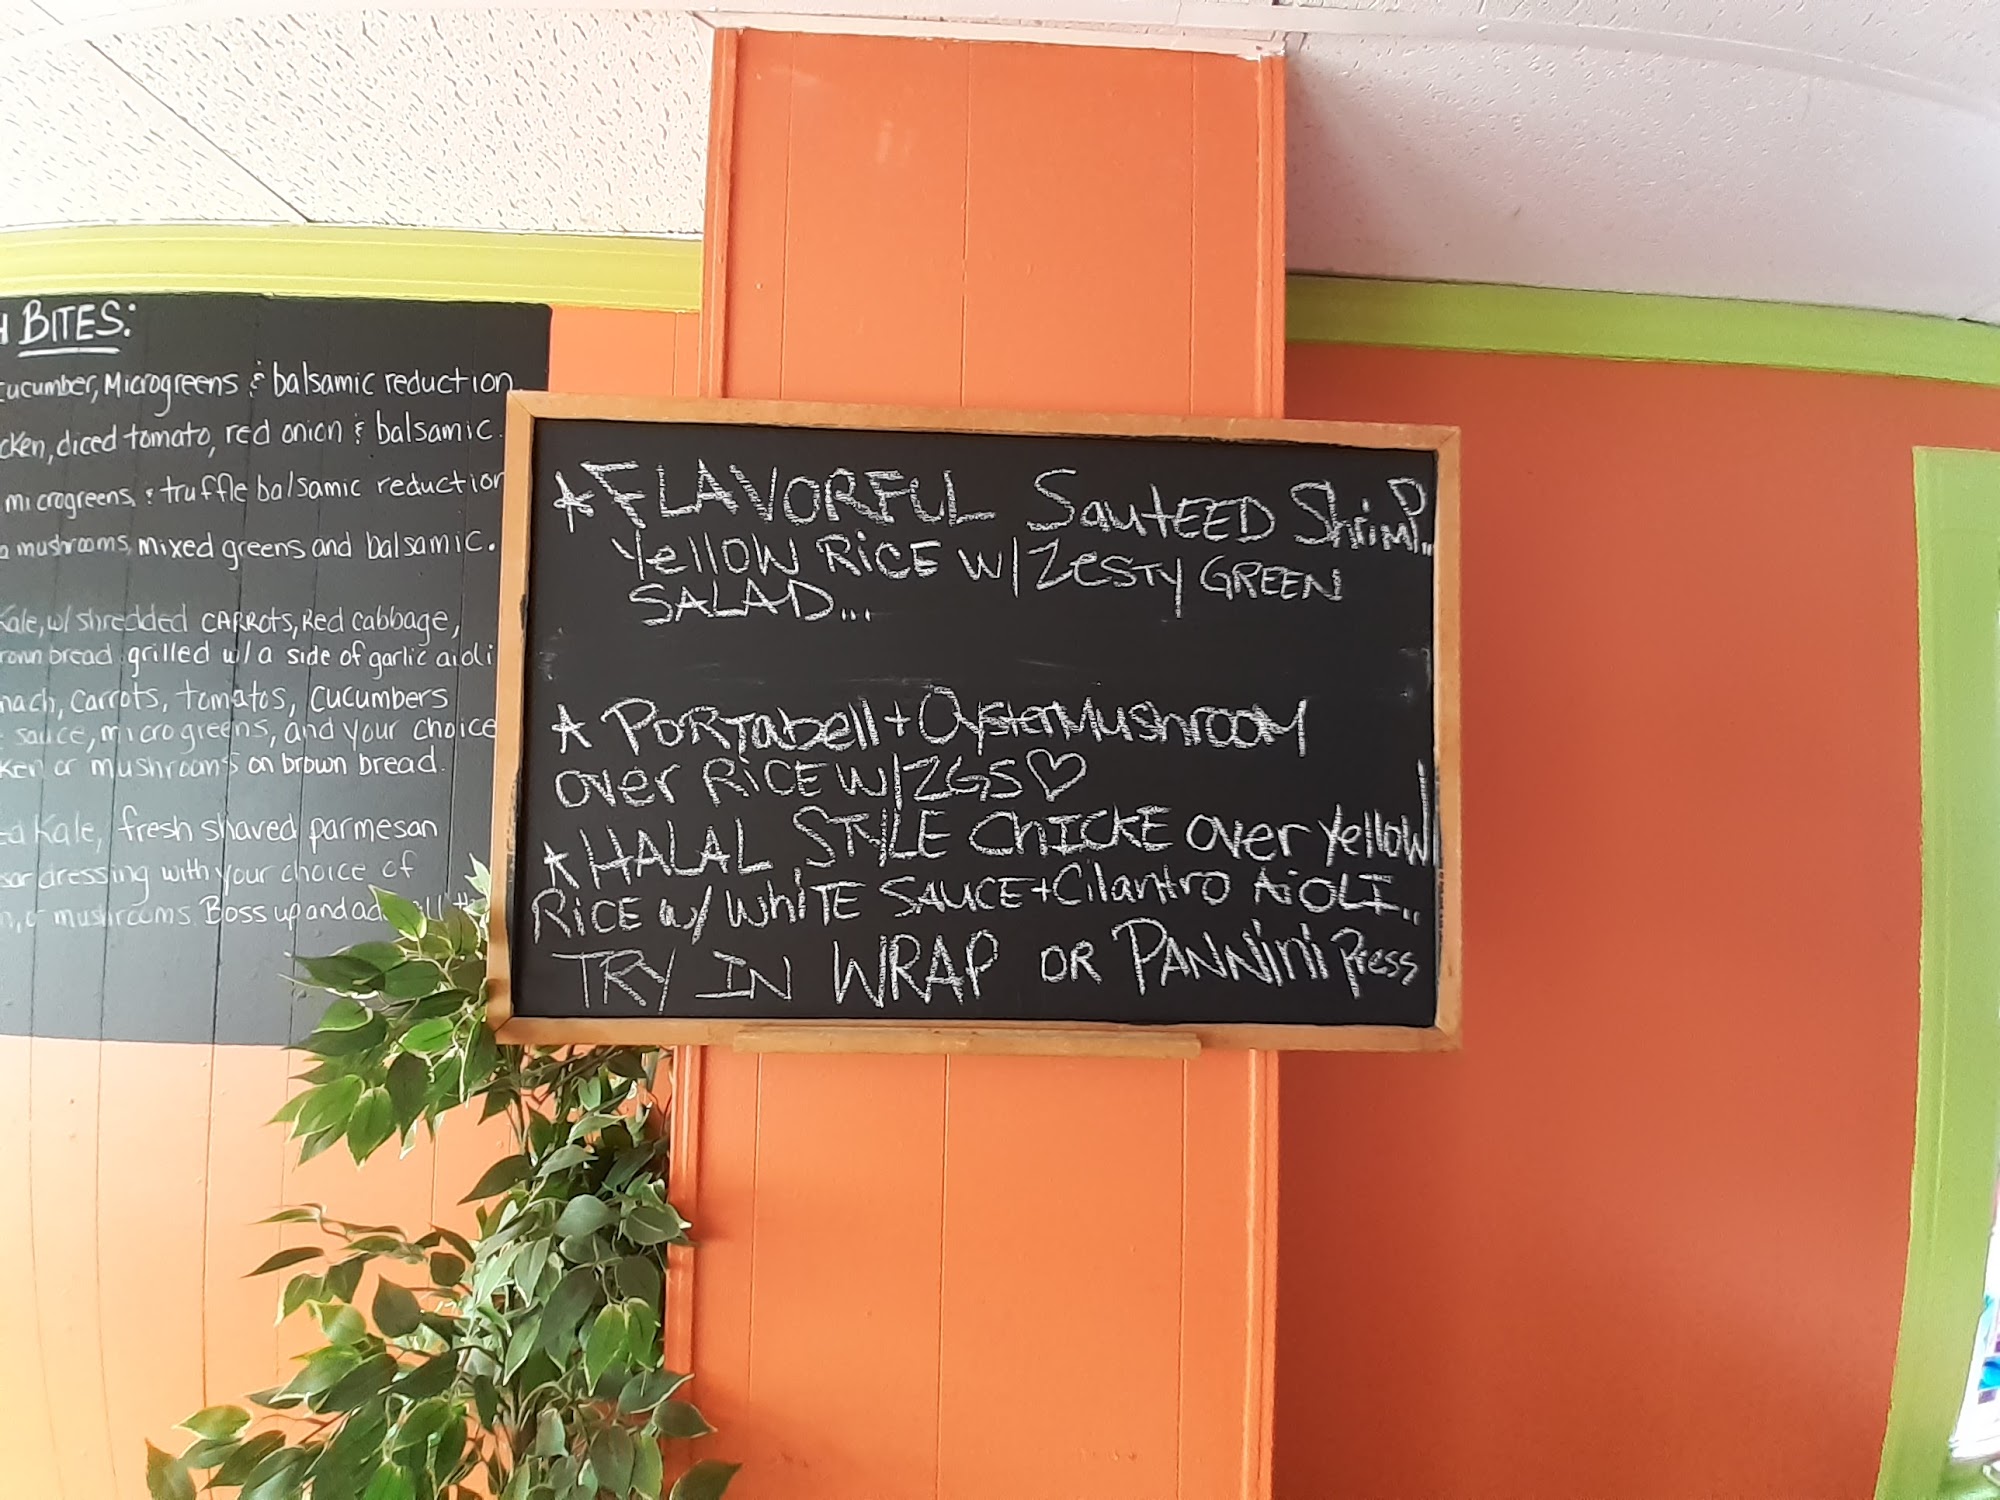 BITES:
cucumber, Microgreens & balsamic reduction
cken, diced tomato, red onion & balsamic.
microgreens, & truffle balsamic reduction
mushrooms, mixed greens and balsamic.
Kale, w/ shredded CARROTS, Red cabbage,
rown bread grilled w/ a side of garlic aioli
nach, Carrots, tomatos, cucumbers
sauce, micro greens, and your choice
ken or mushrooms on brown bread.
ed Kale, fresh shaved parmesan
sar dressing with your choice of
n, or mushrooms. Boss up and ad
★ FLAVORFUL SautEED ShrimP..
Yellow RiCE W/ ZeSTY GREEN
SALAD...
★ PORTabell + Oyster Mushroom
over RiCE W/ ZGS ♡
★ HALAL STYLE ChICKE over Yellow
RiCE w/ WhiTE SAUCE + Cilantro AiOLI..
TRY IN WRAP OR PANNini Press